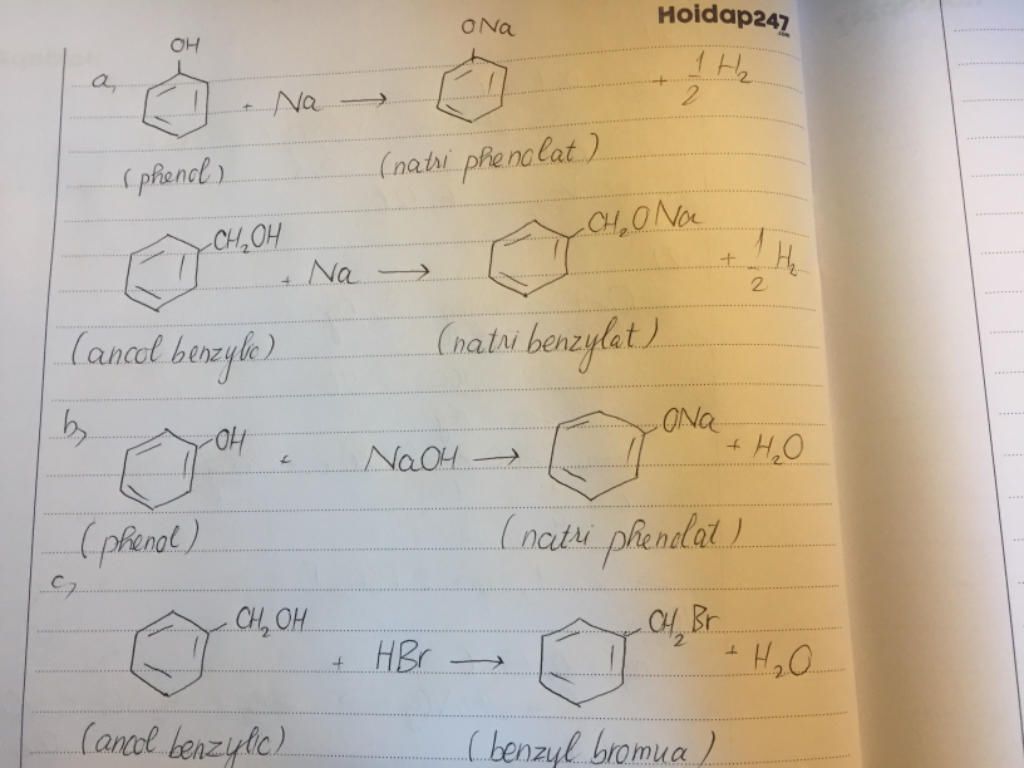 Hoidap247.com
OH ONa
a, + Na → + 1/2 H₂
(phenol) (natri phenolat)
CH₂OH + Na → CH₂ONa + 1/2 H₂
(ancol benzylic) (natri benzylat)
b, OH + NaOH → ONa + H₂O
(phenol) (natri phenolat)
c,
CH₂OH + HBr → CH₂Br + H₂O
(ancol benzylic) (benzyl bromua)